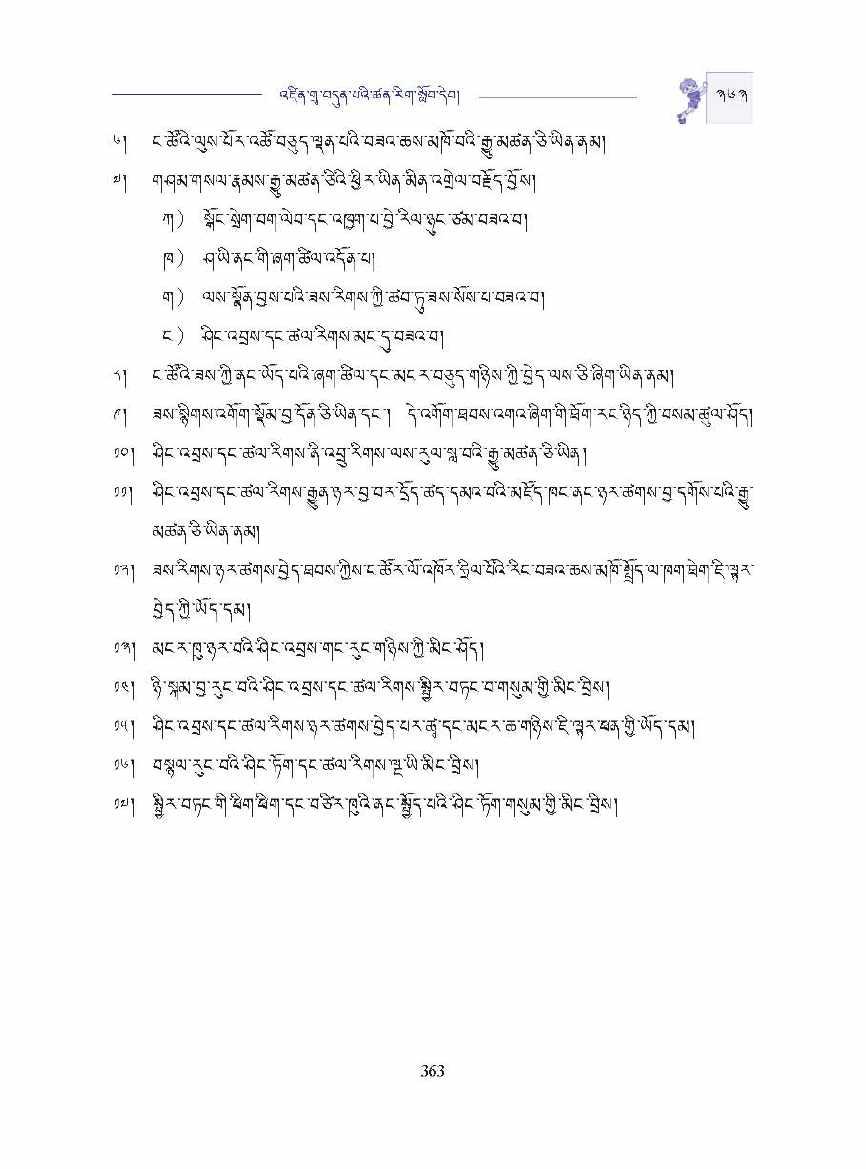 འཛིན་གྲྭ་བདུན་པའི་ཚན་རིག་སློབ་དེབ།
༣༦༣
༦། ང་ཚོའི་ལུས་པོར་འཚོ་བཅུད་ལྡན་པའི་བཟའ་ཆས་མཁོ་བའི་རྒྱུ་མཚན་ཅི་ཡིན་ནམ།
༧། གཤམ་གསལ་རྣམས་རྒྱུ་མཚན་ཅིའི་ཕྱིར་ཡིན་མིན་འགྲེལ་བརྗོད་བྱོས།
ཀ) སྒོང་སྲེག་བག་ལེབ་དང་འཁྱག་པ་བྱེ་རིལ་ཉུང་ཙམ་བཟའ་བ།
ཁ) ཤ་ཡི་ནང་གི་ཞག་ཚིལ་འདོན་པ།
ག) ལས་སྣོན་བྱས་པའི་ཟས་རིགས་ཀྱི་ཚབ་ཏུ་ཟས་སོས་པ་བཟའ་བ།
ང) ཤིང་འབྲས་དང་ཚལ་རིགས་མང་དུ་བཟའ་བ།
༨། ང་ཚོའི་ཟས་ཀྱི་ནང་ཡོད་པའི་ཞག་ཚིལ་དང་མངར་བཅུད་གཉིས་ཀྱི་བྱེད་ལས་ཅི་ཞིག་ཡིན་ནམ།
༩། ཟས་སྙིགས་འགོག་སྡོམ་བྱ་དོན་ཅི་ཡིན་དང་། དེ་འགོག་ཐབས་འགའ་ཞིག་གི་ཐོག་རང་ཉིད་ཀྱི་བསམ་ཚུལ་ཤོད།
༡༠། ཤིང་འབྲས་དང་ཚལ་རིགས་ནི་འབྲུ་རིགས་ལས་རུལ་སླ་བའི་རྒྱུ་མཚན་ཅི་ཡིན།
༡༡། ཤིང་འབྲས་དང་ཚལ་རིགས་རྒྱུན་ཉར་བྱ་བར་དྲོད་ཚད་དམའ་བའི་མཛོད་ཁང་ནང་ཉར་ཚགས་བྱ་དགོས་པའི་རྒྱུ་
མཚན་ཅི་ཡིན་ནམ།
༡༢། ཟས་རིགས་ཉར་ཚགས་བྱེད་ཐབས་ཀྱིས་ང་ཚོར་ལོ་འཁོར་ཧྲིལ་པོའི་རིང་བཟའ་ཆས་མཁོ་སྤྲོད་ལ་ཁག་ཐེག་ཇི་ལྟར་
བྱེད་ཀྱི་ཡོད་དམ།
༡༣། མངར་ཁུ་ཉར་བའི་ཤིང་འབྲས་གང་རུང་གཉིས་ཀྱི་མིང་ཤོད།
༡༤། ཉི་སྐམ་བྱ་རུང་བའི་ཤིང་འབྲས་དང་ཚལ་རིགས་སྤྱིར་བཏང་བ་གསུམ་གྱི་མིང་བྲིས།
༡༥། ཤིང་འབྲས་དང་ཚལ་རིགས་ཉར་ཚགས་བྱེད་པར་ཚྭ་དང་མངར་ཆ་གཉིས་ཇི་ལྟར་ཕན་གྱི་ཡོད་དམ།
༡༦། བསྙལ་རུང་བའི་ཤིང་ཏོག་དང་ཚལ་རིགས་ལྔ་ཡི་མིང་བྲིས།
༡༧། སྤྱིར་བཏང་གི་ཕིག་ཕིག་དང་བཙིར་ཁུའི་ནང་སྤྱོད་པའི་ཤིང་ཏོག་གསུམ་གྱི་མིང་བྲིས།
363